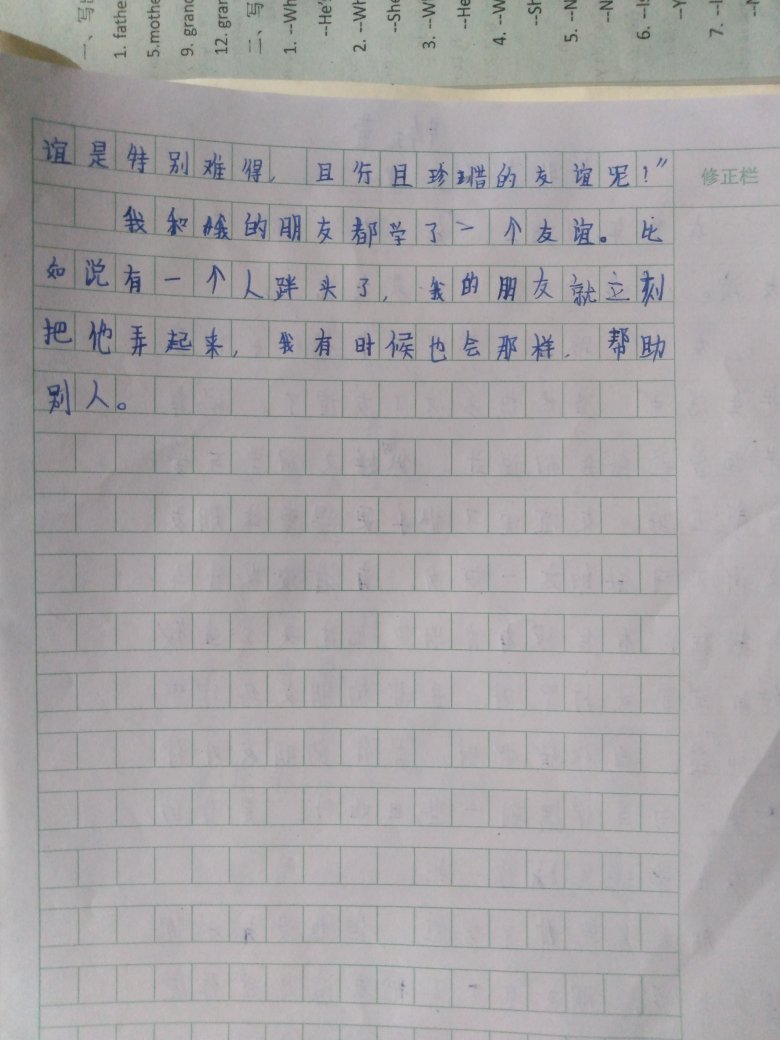 一、写出
1. father
5.mothe
9. grand
12. gran
二、写
1. --Wh
--He'
2. --Wh
--She
3. --W
--He
4. --W
--Sh
5. --N
--N
6. --Is
--Y
7. --I
谊是特别难得，且行且珍惜的友谊呢！”
我和我的朋友都学了一个友谊。比
如说有一个人跘头了，我的朋友就立刻
把他弄起来，我有时候也会那样，帮助
别人。
修正栏